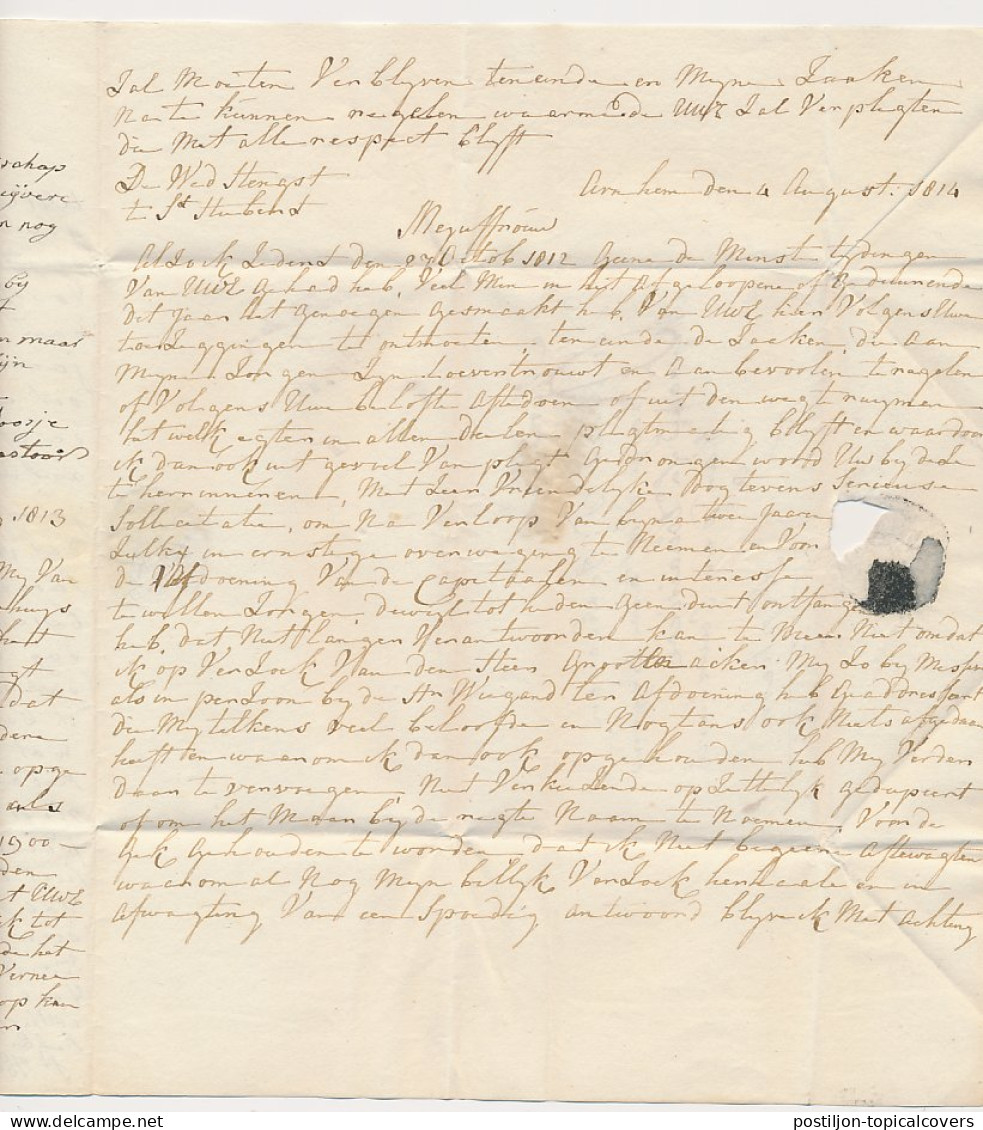 schap
n nog
by
n maar
1813
My Van
huys
dat
opge
als
1900 –
den
t UWE
ik tot
de het
Vernee
op kan
Zal Moeten Verblyven ten einde en Myne Zaaken
Na te kunnen regelen waarmede UWE Zal Verpligten
die Met alle respect blyft
De Wed Hengst
te St Hubert
Arnhem den 4 August. 1814
Mejuffrouw
Alzo ick Zedert den 27 Octob 1812 Geene de Minste tydingen
Van UWE Gehad heb, Veel Min in het Afgeloopene of Gedurende
dit Jaar het Genoegen Gesmaakt heb Van UWE hier Volgens Uwe
toeZeggingen te ontmoeten, ten einde de Zaeken die Aan
Myne Zorgen Zyn toevertrouwt en Aanbevoolen te regelen
of Volgens Uwe belofte Aftedoen of uit den weg te ruymen
het welk egter in allen deelen plegtmatig blyft en waardoor
ik dan ook uit gevoel Van plegt Gedrongen word Uw by deese
te herrinneren, Met Zeer Vriendelyke dog tevens Serieuse
Sollicitatie, om Na Verloop Van byna twee Jaaren
Zulkx in ernstige overweging te Neemen en Voor
de Afdoening Van de Capitaalen en interesse
te willen Zorgen, dewyl tot heden Geen duit ontfangen
heb, dat Niet langer Verantwoorden kan te Meer Niet omdat
ik op VerZoek Van den Heer Groot Zo by Messive
als in perZoon by de Hr Wiegand ter Afdoening heb Geaddresseert
die My telkens veel beloofde en Nogtans ook Niets afgedaan
heeft en waarom ik dan ook opgehouden heb My Verder
daar te vervoegen, Niet Verkiezende op Zettelyk Gedupeert
of om het Maar by de regte Naam te Noemen, Voor de
Gek Gehouden te worden dat ik Niet begeere Aftewagten
waarom al Nog Myn billyk VerZoek herhaale en in
Afwagting Van een Spoedig antwoord blyve ik Met Achting
postiljon-topicalcovers